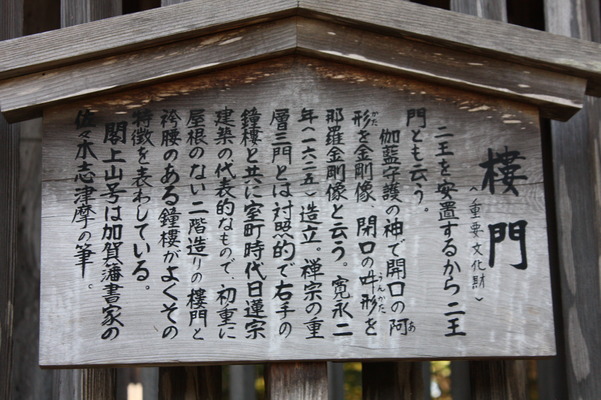 樓門
(重要文化財)
二王を安置するから二王
門とも云う。
伽藍守護の神で開口の阿
あ
形を金剛像 開口の吽形を
がた
うんかた
那羅金剛像と云う。寛永二
年(一六二五)造立。禅宗の重
層三門とは対照的で右手の
鐘樓と共に室町時代日蓮宗
建築の代表的なもので、初重に
屋根のない二階造りの樓門と
袴腰のある鐘樓がよくその
特徴を表わしている。
閣上山号は加賀藩書家の
佐々木志津摩の筆。